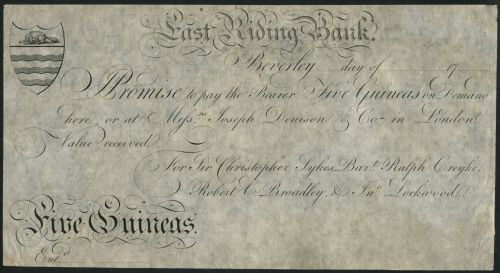 East Riding Bank.
Beverley day of 17
I Promise to pay the Bearer Five Guineas on Demand
here, or at Mess.rs Joseph Denison & Co. in London
Value received
For Sir Christopher Sykes Bar.t Ralph Creyke,
Robert C. Broadley, & Jn.o Lockwood.
Five Guineas.
Ent.d